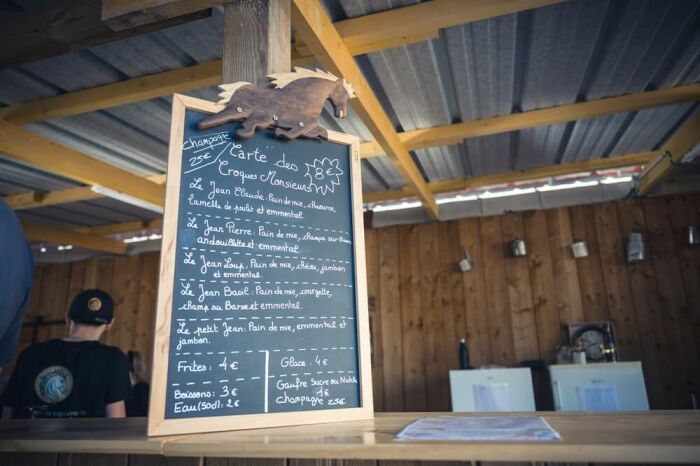 Champagne
25€
Carte des
Croques Monsieurs
8€
Le Jean Claude: Pain de mie, chaource,
lamelle de poulet et emmental.
Le Jean Pierre: Pain de mie, champs-sur-Barse
andouillette et emmental.
Le Jean Loup: Pain de mie, chèvre, jambon
et emmental.
Le Jean Basil: Pain de mie, courgette,
champ su Barse et emmental.
Le petit Jean: Pain de mie, emmental et
jambon.
Frites: 4€
Glace: 4€
Boissons: 3€
Eau(50cl): 2€
Gaufre Sucre ou Nutella
4€
Champagne 25€